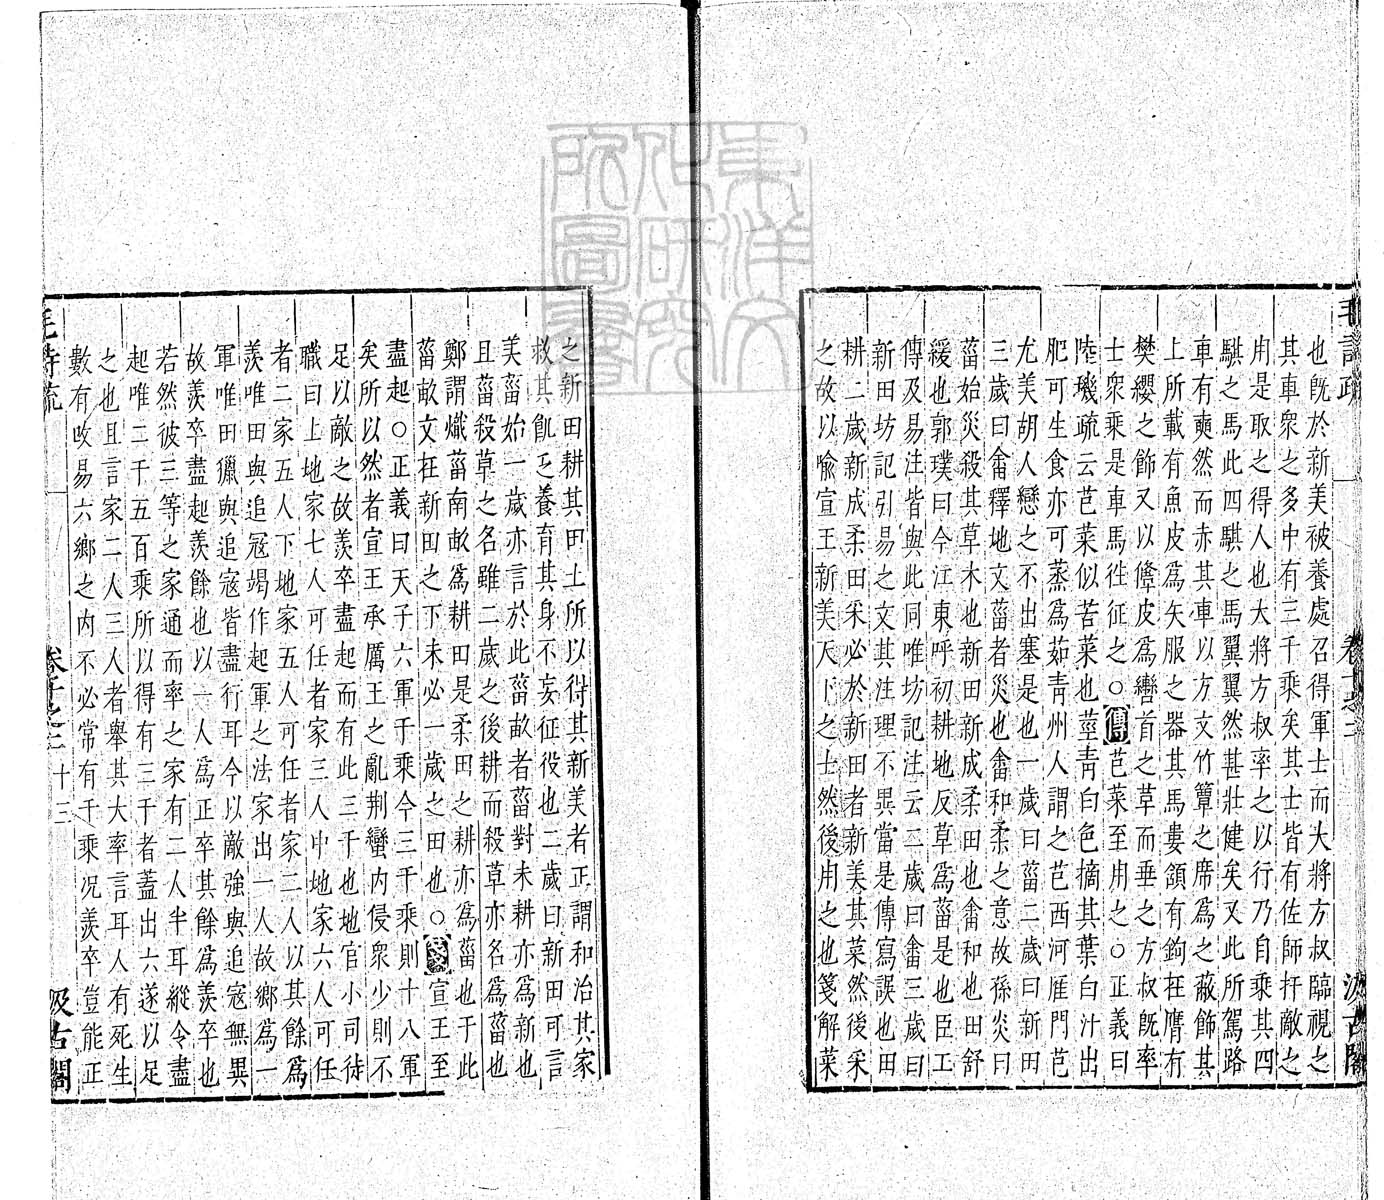 毛詩疏 卷十之二 汲古閣
也旣於新美被養處召得軍士而大將方叔臨視之
其車衆之多中有三千乘矣其士皆有佐師扞敵之
用是取之得人也大將方叔率之以行乃自乘其四
騏之馬此四騏之馬翼翼然甚壯健矣又此所駕路
車有奭然而赤其車以方文竹簟之席爲之蔽飾其
上所載有魚皮爲矢服之器其馬婁頷有鉤在膺有
樊纓之飾又以鞗皮爲轡首之草而垂之方叔旣率
士衆乘是車馬往征之○傳芑菜至用之○正義曰
陸璣疏云芑菜似苦菜也莖靑白色摘其葉白汁出
肥可生食亦可蒸爲茹靑州人謂之芑西河雁門芑
尤美胡人戀之不出塞是也一歲曰菑二歲曰新田
三歲曰畬釋地文菑者災也畬和柔之意故孫炎曰
菑始災殺其草木也新田新成柔田也畬和也田舒
緩也郭璞曰今江東呼初耕地反草爲菑是也臣工
傳及易注皆與此同唯坊記注云二歲曰畬三歲曰
新田坊記引易之文其注理不異當是傳寫誤也田
耕二歲新成柔田采必於新田者新美其菜然後采
之故以喻宣王新美天下之士然後用之也箋解菜
之新田耕其田土所以得其新美者正謂和治其家
救其飢乏養育其身不妄征役也二歲曰新田可言
美菑始一歲亦言於此菑畝者菑對未耕亦爲新也
且菑殺草之名雖二歲之後耕而殺草亦名爲菑也
鄭謂熾菑南畝爲耕田是柔田之耕亦爲菑也于此
菑畝文在新田之下未必一歲之田也○箋宣王至
盡起○正義曰天子六軍千乘今三千乘則十八軍
矣所以然者宣王承厲王之亂荆蠻内侵衆少則不
足以敵之故羨卒盡起而有此三千也地官小司徒
職曰上地家七人可任者家三人中地家六人可任
者二家五人下地家五人可任者家二人以其餘爲
羨唯田與追寇竭作起軍之法家出一人故鄉爲一
軍唯田獵與追寇皆盡行耳今以敵強與追寇無異
故羨卒盡起羨餘也以一人爲正卒其餘爲羨卒也
若然彼三等之家通而率之家有二人半耳縱令盡
起唯二千五百乘所以得有三千者蓋出六遂以足
之也且言家二人三人者舉其大率言耳人有死生
數有改易六鄉之内不必常有千乘况羨卒豈能正
毛詩疏 卷十之二 十三 汲古閣
東洋文化研究所圖書